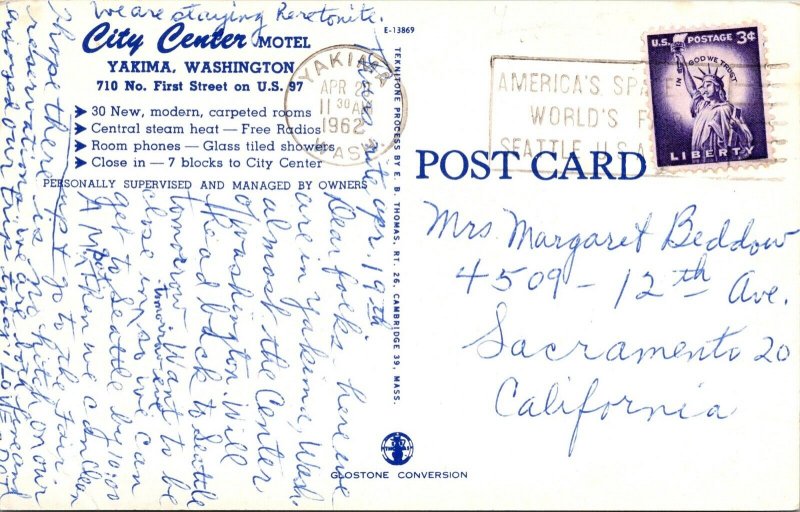 We are staying here tonite.
City Center MOTEL
YAKIMA, WASHINGTON
710 No. First Street on U.S. 97
30 New, modern, carpeted rooms
Central steam heat — Free Radios
Room phones — Glass tiled showers
Close in — 7 blocks to City Center
PERSONALLY SUPERVISED AND MANAGED BY OWNERS
E-13869
TEKNITONE PROCESS BY E. B. THOMAS, RT. 26, CAMBRIDGE 39, MASS.
YAKIMA
APR 2
11 30 AM
1962
WASH
AMERICA'S SPA
WORLD'S F
SEATTLE U.S.A
U.S. POSTAGE 3¢
IN GOD WE TRUST
LIBERTY
POST CARD
Mrs Margaret Beddow
4509 - 12th Ave.
Sacramento 20
California
Thurs nite Apr. 19th
Dear folks - here we
are in Yakima, Wash.
almost the center
of Washington. Will
head back to Seattle
tomorrow. Want to be
close in so we can
tomorrow eve
get to Seattle by 10:00
A.M. Then we can
go to the fair.
hope there is no hitch on our
reservations. We are both
enjoyed our trip today. Love
GLOSTONE CONVERSION